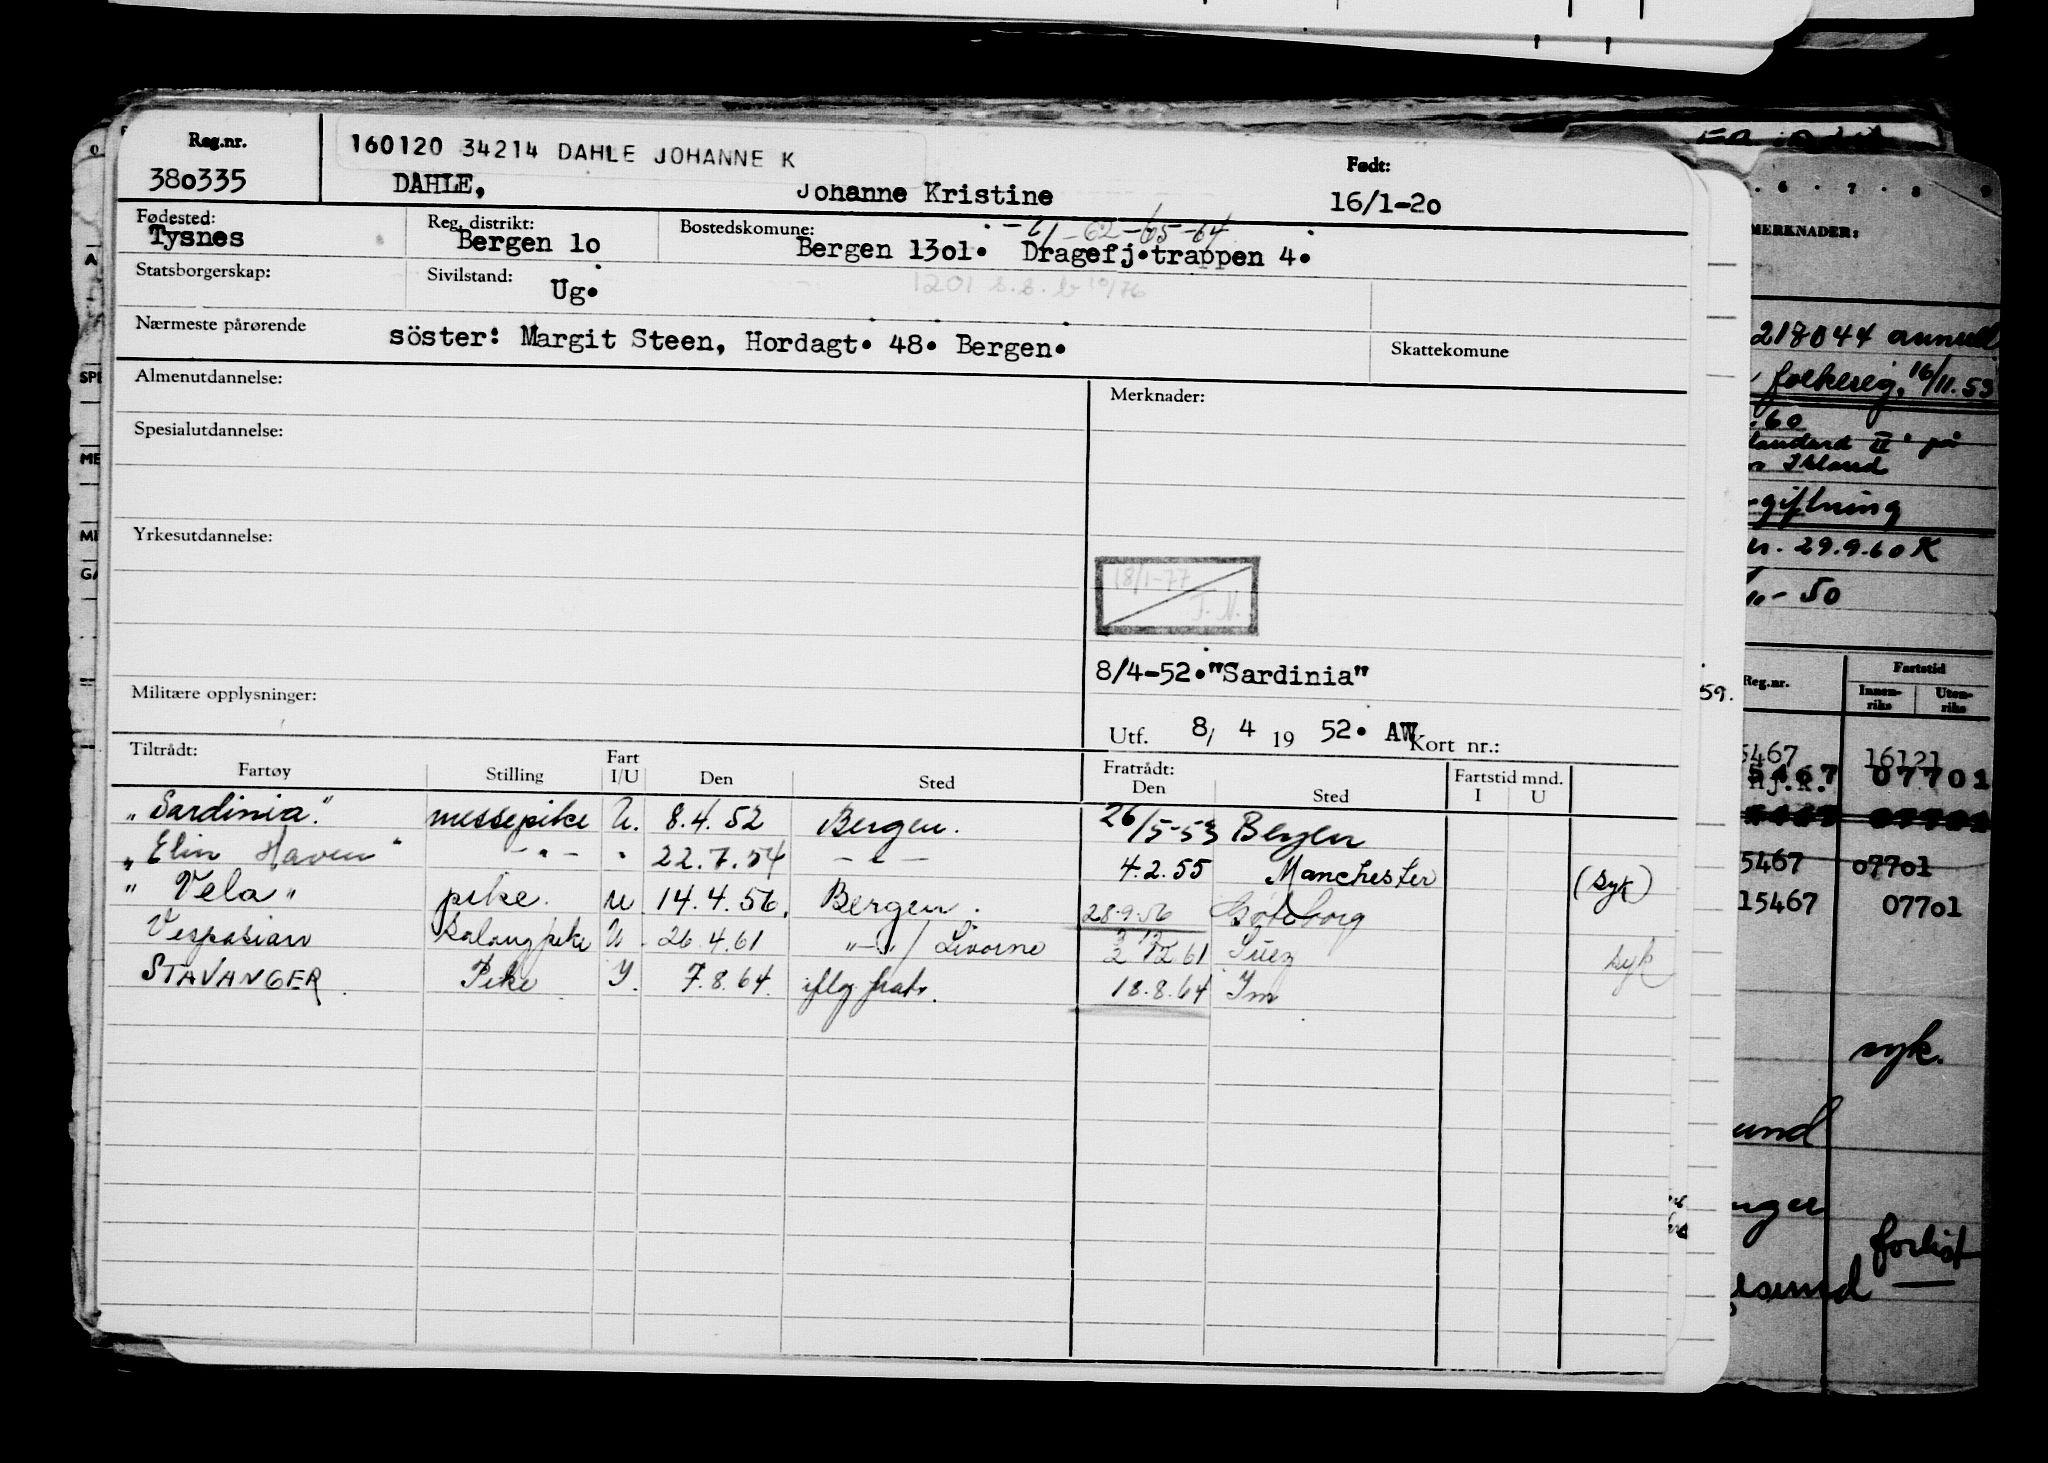 Reg.nr.
380335
160120 34214 DAHLE JOHANNE K
DAHLE, Johanne Kristine
Født:
16/1-20
Fødested:
Tysnes
Reg. distrikt:
Bergen 10
Bostedskomune: -61-62-65-64
Bergen 1301. Dragefj.trappen 4.
Statsborgerskap:
Sivilstand:
Ug.
1201 s.s.b 10/76
Nærmeste pårørende
söster: Margit Steen, Hordagt. 48. Bergen.
Skattekomune
Almenutdannelse:
Merknader:
Spesialutdannelse:
Yrkesutdannelse:
18/1-77
T.N.
8/4-52."Sardinia"
Militære opplysninger:
Utf. 8/ 4 19 52. AW Kort nr.:
Tiltrådt:
Fartøy Stilling Fart I/U Den Sted
Fratrådt:
Den Sted Fartstid mnd. I U
"Sardinia" messepike U. 8.4.52 Bergen. 26/5-53 Bergen
"Elin Haven" -"- " 22.7.54 -"- 4.2.55 Manchester (syk)
"Vela" pike. U 14.4.56. Bergen. 28.9.56 Gøteborg
Vespasian Salongpike U 26.4.61 -"-/ Livorno 2 12 61 Suez syk
STAVANGER Pike I. 7.8.64. iflg fratr. 18.8.64 Im
MERKNADER:
218044 annull
folkereg. 16/11.53
.60
Island
giftning
29.9.60 K
- 50
59.
Reg.nr.
Fartstid
Innen-riks
Uten-riks
5467 16121
5467 07701
5467 07701
15467 07701
syk.
und
forlist